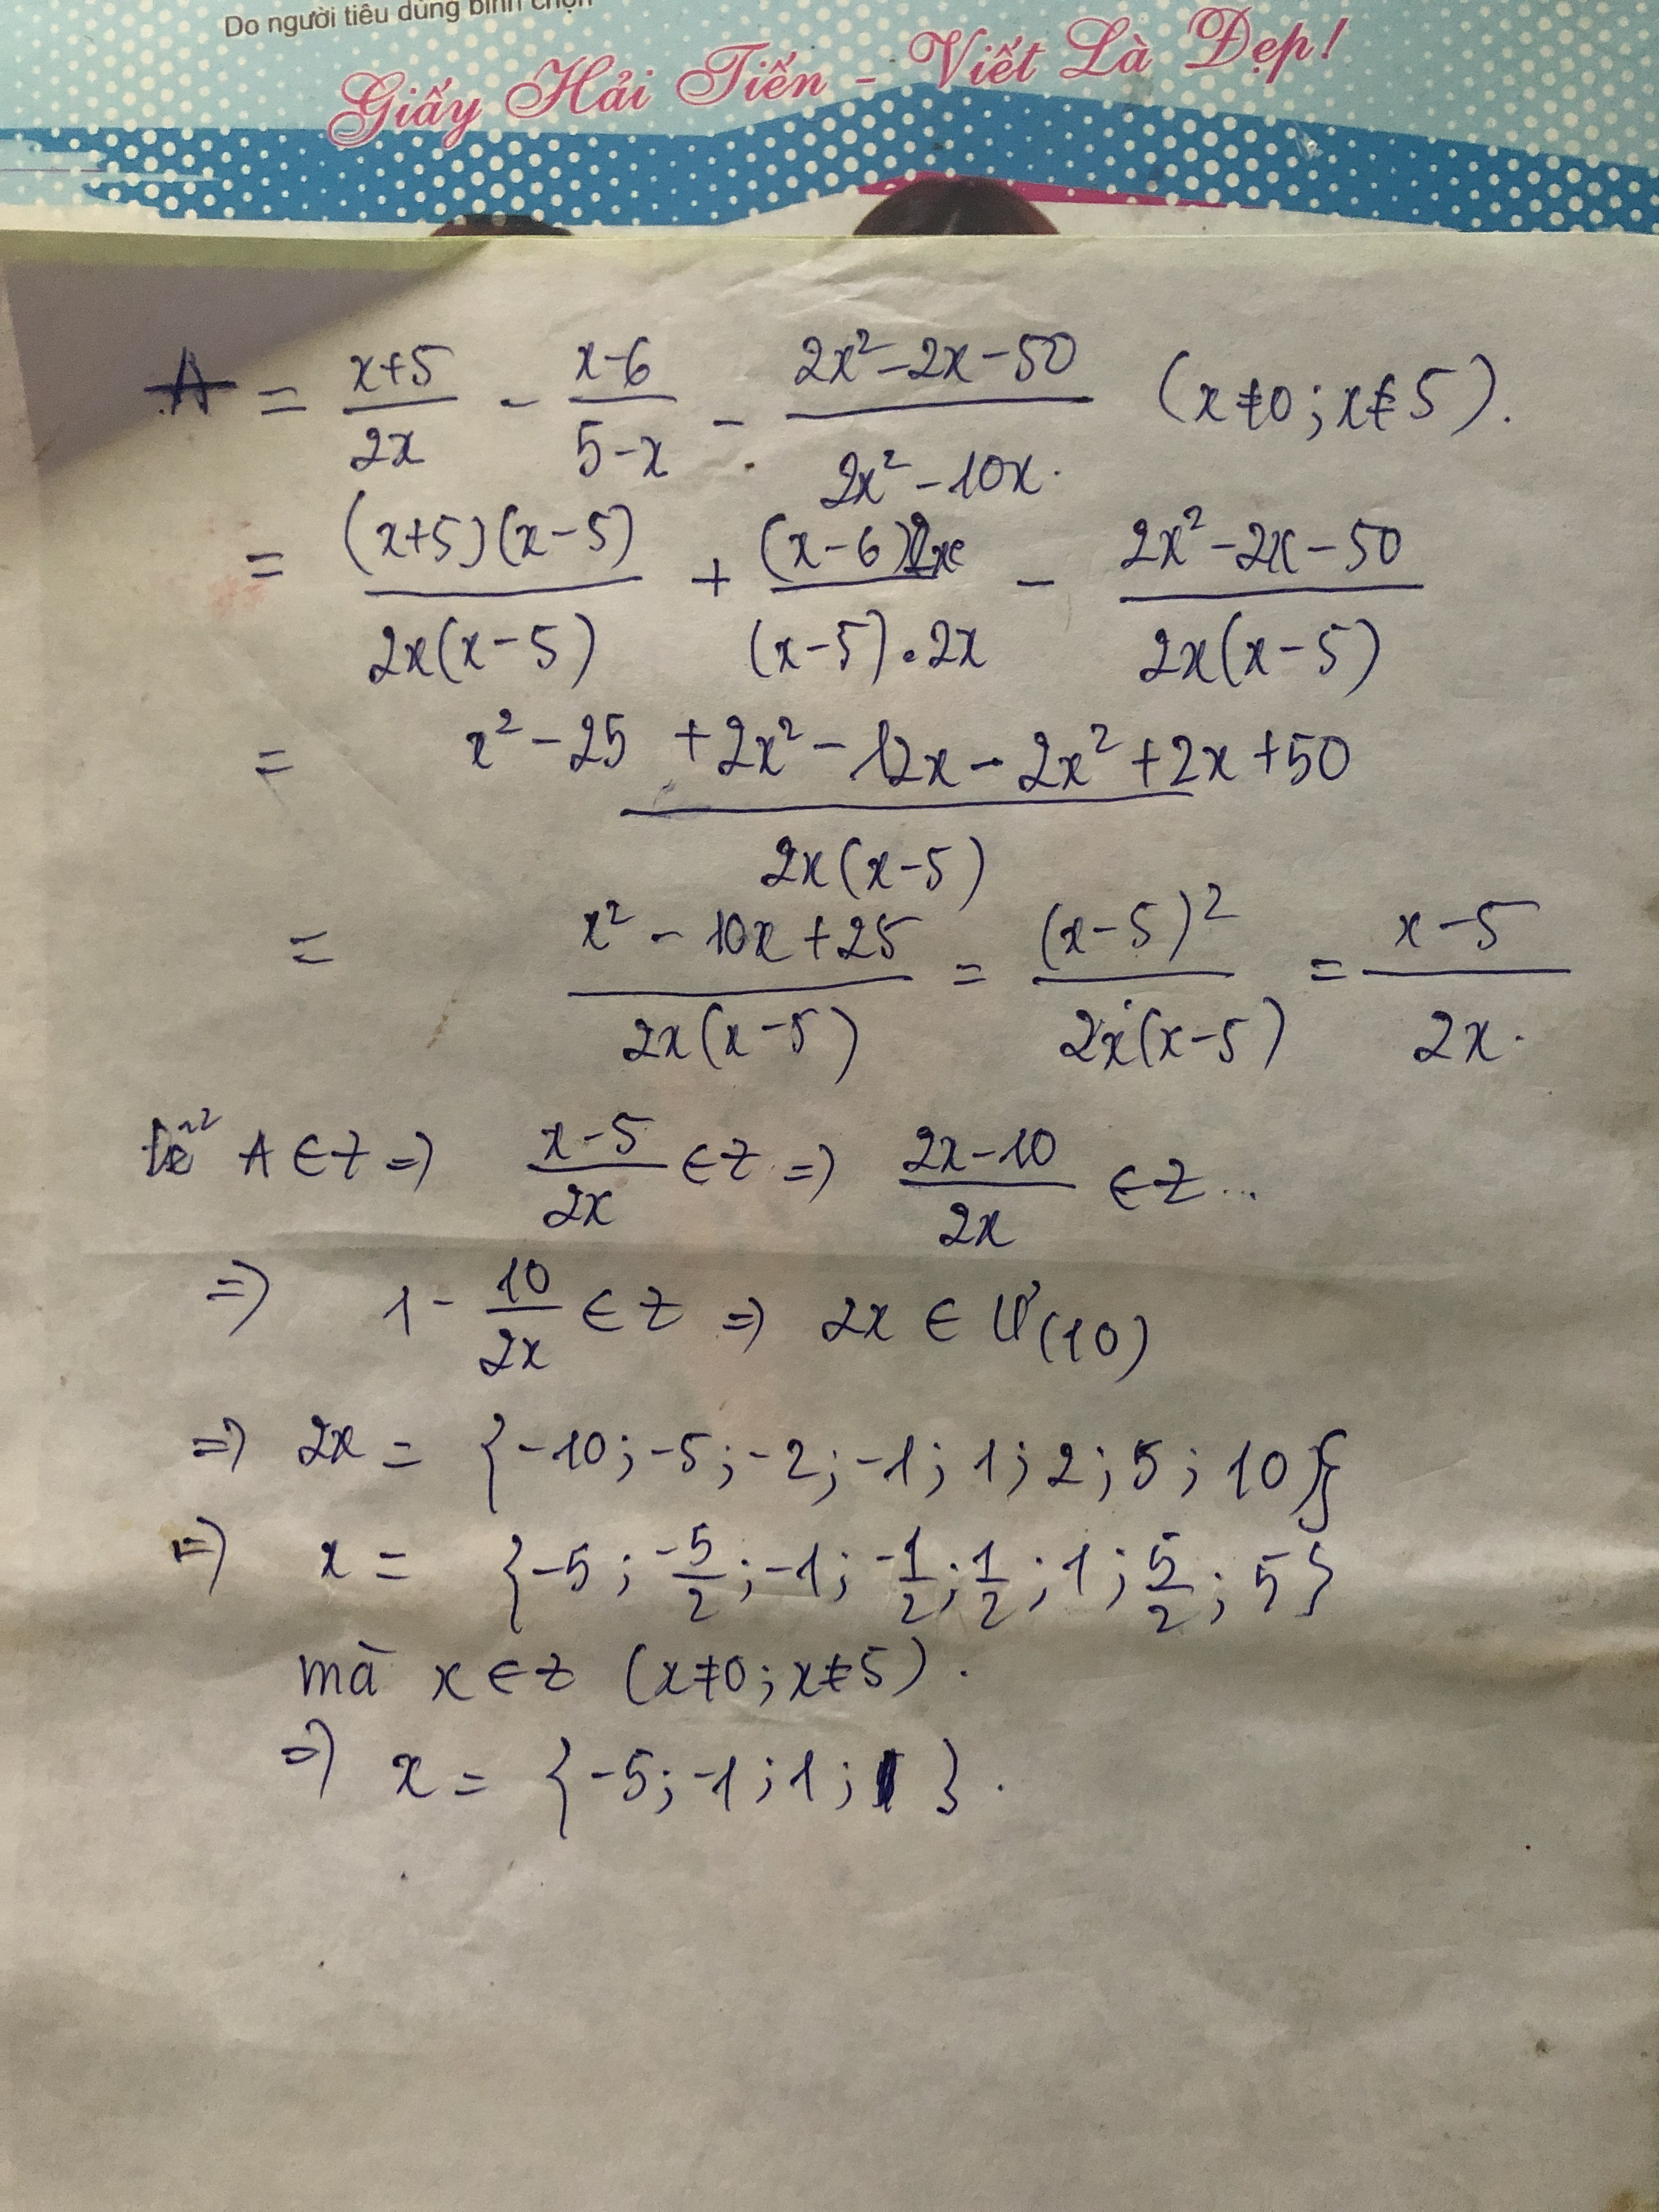 Do người tiêu dùng bình chọn
Giấy Hải Tiến - Viết Là Đẹp!
A = \frac{x+5}{2x} - \frac{x-6}{5-x} - \frac{2x^2-2x-50}{2x^2-10x} (x≠0; x≠5).
= \frac{(x+5)(x-5)}{2x(x-5)} + \frac{(x-6)2x}{(x-5).2x} - \frac{2x^2-2x-50}{2x(x-5)}
= \frac{x^2-25+2x^2-12x-2x^2+2x+50}{2x(x-5)}
= \frac{x^2-10x+25}{2x(x-5)} = \frac{(x-5)^2}{2x(x-5)} = \frac{x-5}{2x}.
Để A ∈ Z => \frac{x-5}{2x} ∈ Z => \frac{2x-10}{2x} ∈ Z...
=> 1 - \frac{10}{2x} ∈ Z => 2x ∈ Ư(10)
=> 2x = {-10; -5; -2; -1; 1; 2; 5; 10}
=> x = {-5; \frac{-5}{2}; -1; \frac{-1}{2}; \frac{1}{2}; 1; \frac{5}{2}; 5}
mà x ∈ Z (x≠0; x≠5).
=> x = {-5; -1; 1; }.